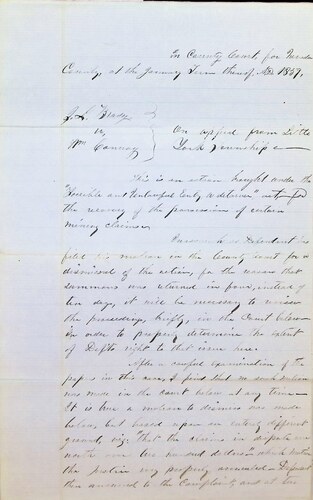 In County Court, for Nevada
County, at the January Term thereof, AD 1859.
J. L. Brady
vs
Wm Conway
On appeal from Little
York Township
This is an action brought under the
"Forcible and Unlawful Entry & detainer" act for
the recovery of the possession of certain
mining claims.
Defendant has
filed his motion in the County Court for a
dismissal of the action, for the reason that
summons was returned in four, instead of
ten days, it will be necessary to review
the proceedings, briefly, in the Court below
in order to properly determine the extent
of Defts right to that issue here.
After a careful examination of the
papers in this case, I find that no such motion
was made in the Court below at any time
It is true a motion to dismiss was made
below, but based upon an entirely different
ground, viz: that the claims in dispute were
worth over two hundred dollars
the
property Defendant
then answered to the Complaint, and at